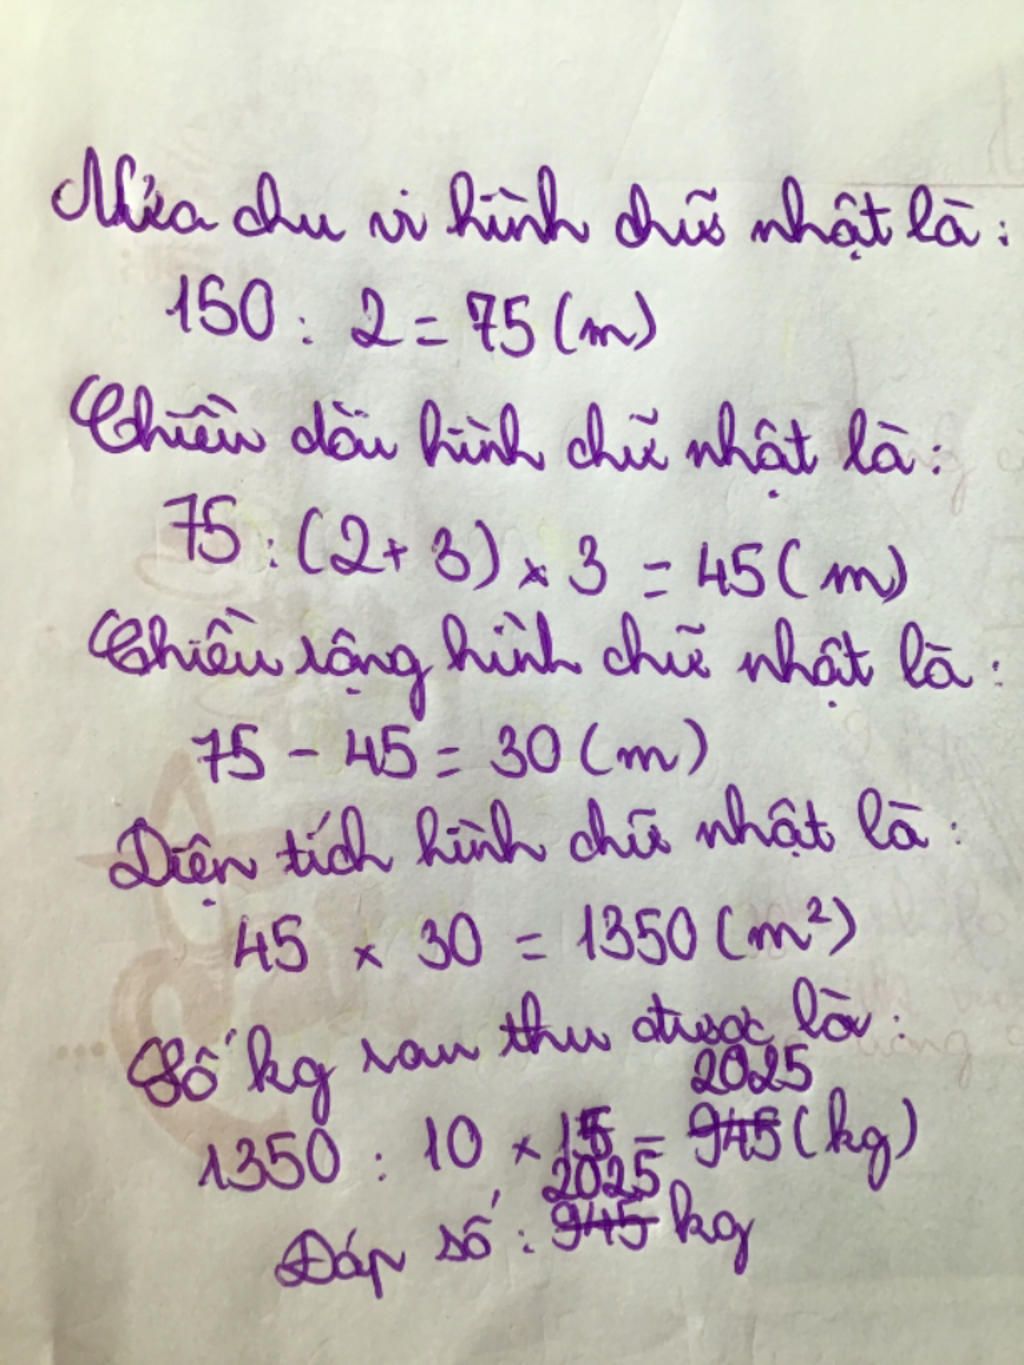 Nửa chu vi hình chữ nhật là:
150 : 2 = 75 (m)
Chiều dài hình chữ nhật là:
75 : (2 + 3) x 3 = 45 (m)
Chiều rộng hình chữ nhật là:
75 - 45 = 30 (m)
Diện tích hình chữ nhật là:
45 x 30 = 1350 (m²)
Số kg rau thu được là:
2025
1350 : 10 x 15 = 945 (kg)
2025
Đáp số: 945 kg